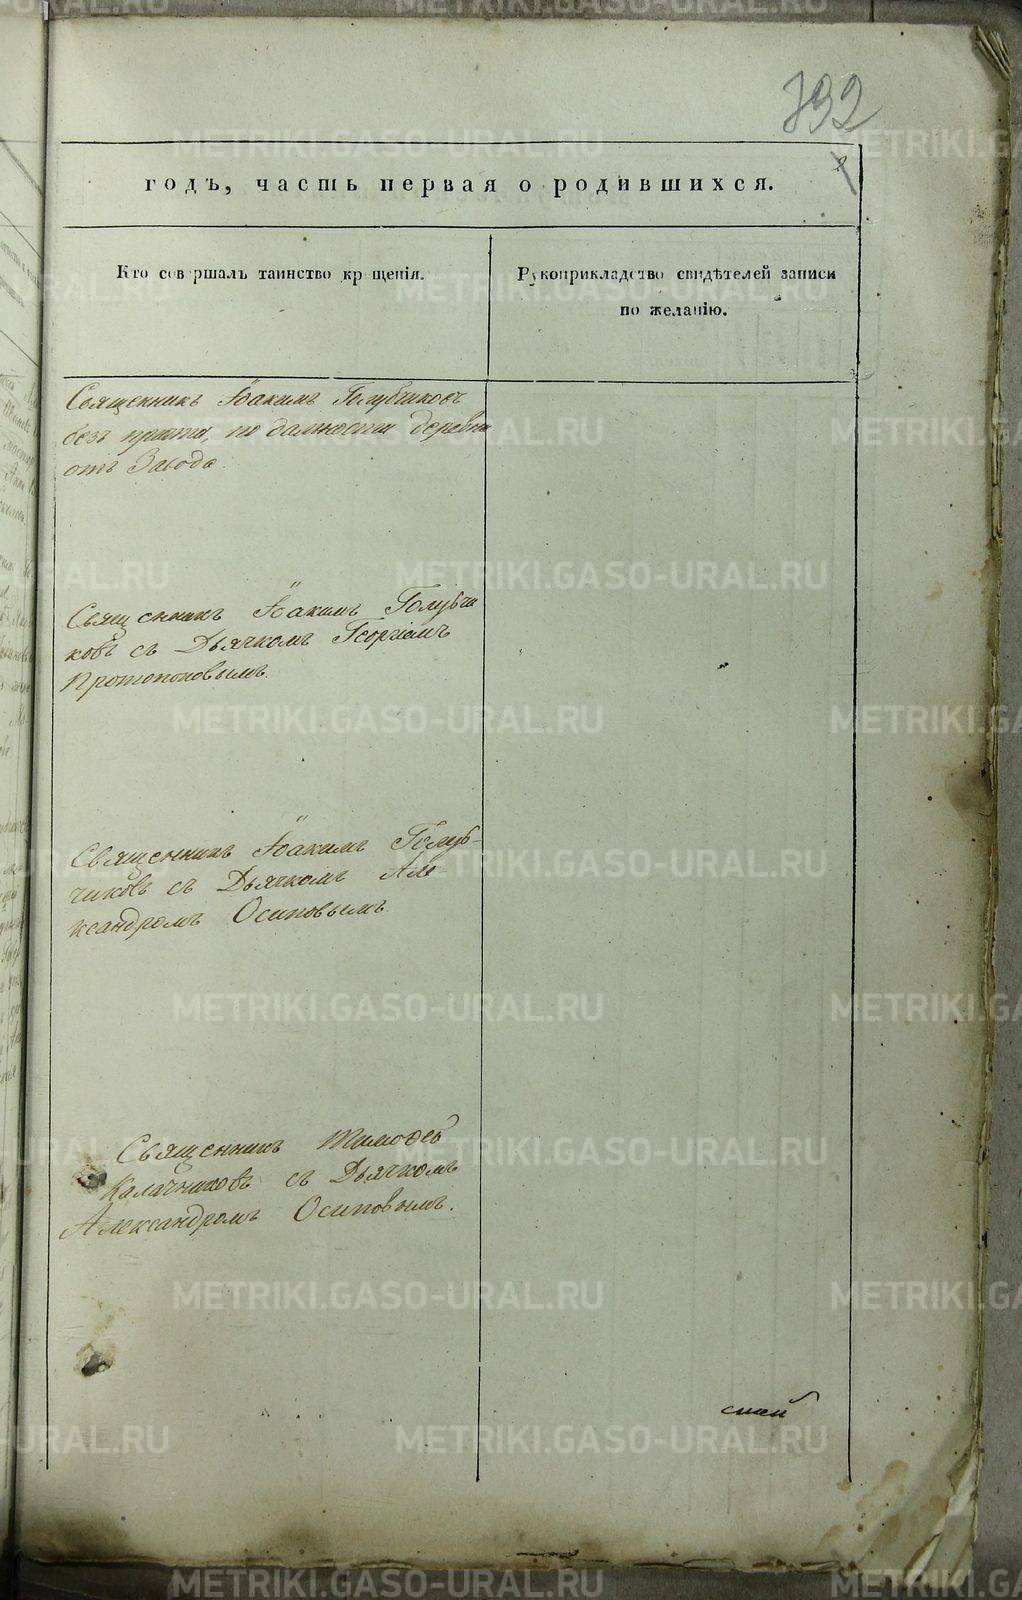 792
годъ, часть первая о родившихся.
Кто совершалъ таинство крещенія.
Рукоприкладство свидѣтелей записи
по желанію.
Священникъ Іоакимъ Голубчиковъ
безъ причта, по дальности деревни
отъ Завода.
Священникъ Іоакимъ Голубчи
ковъ съ Дьячкомъ Георгіемъ
Протопоповымъ.
Священникъ Іоакимъ Голуб-
чиковъ съ Дьячкомъ Але-
ксандромъ Осиповымъ.
Священникъ Тимофей
Калачниковъ съ Дьячкомъ
Александромъ Осиповымъ.
METRIKI.GASO-URAL.RU